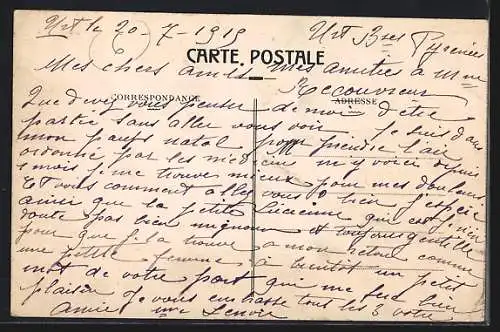 Urt le 20-7-1919 Urt Bses Pyrenées
CARTE POSTALE
Mes chers amis mes amitiés à Mme
Recouvreur
CORRESPONDANCE ADRESSE
Que devez vous penser de moi d'être
partie sans aller vous voir Je suis dans
mon pays natal pour prendre l'air
ordonné par les médecins m'y voici depuis
1 mois je me trouve mieux pour mes douleurs.
Et vous comment allez vous? bien j'espère
ainsi que la petite Lucienne qui est j'en
doute pas bien mignonne et toujours gentille
pour que je la trouve à mon retour comme
une petite femme à bientôt un petit
mot de votre part qui me fera bien
plaisir Je vous embrasse tous les 3 votre
Amie Mme Lenoir